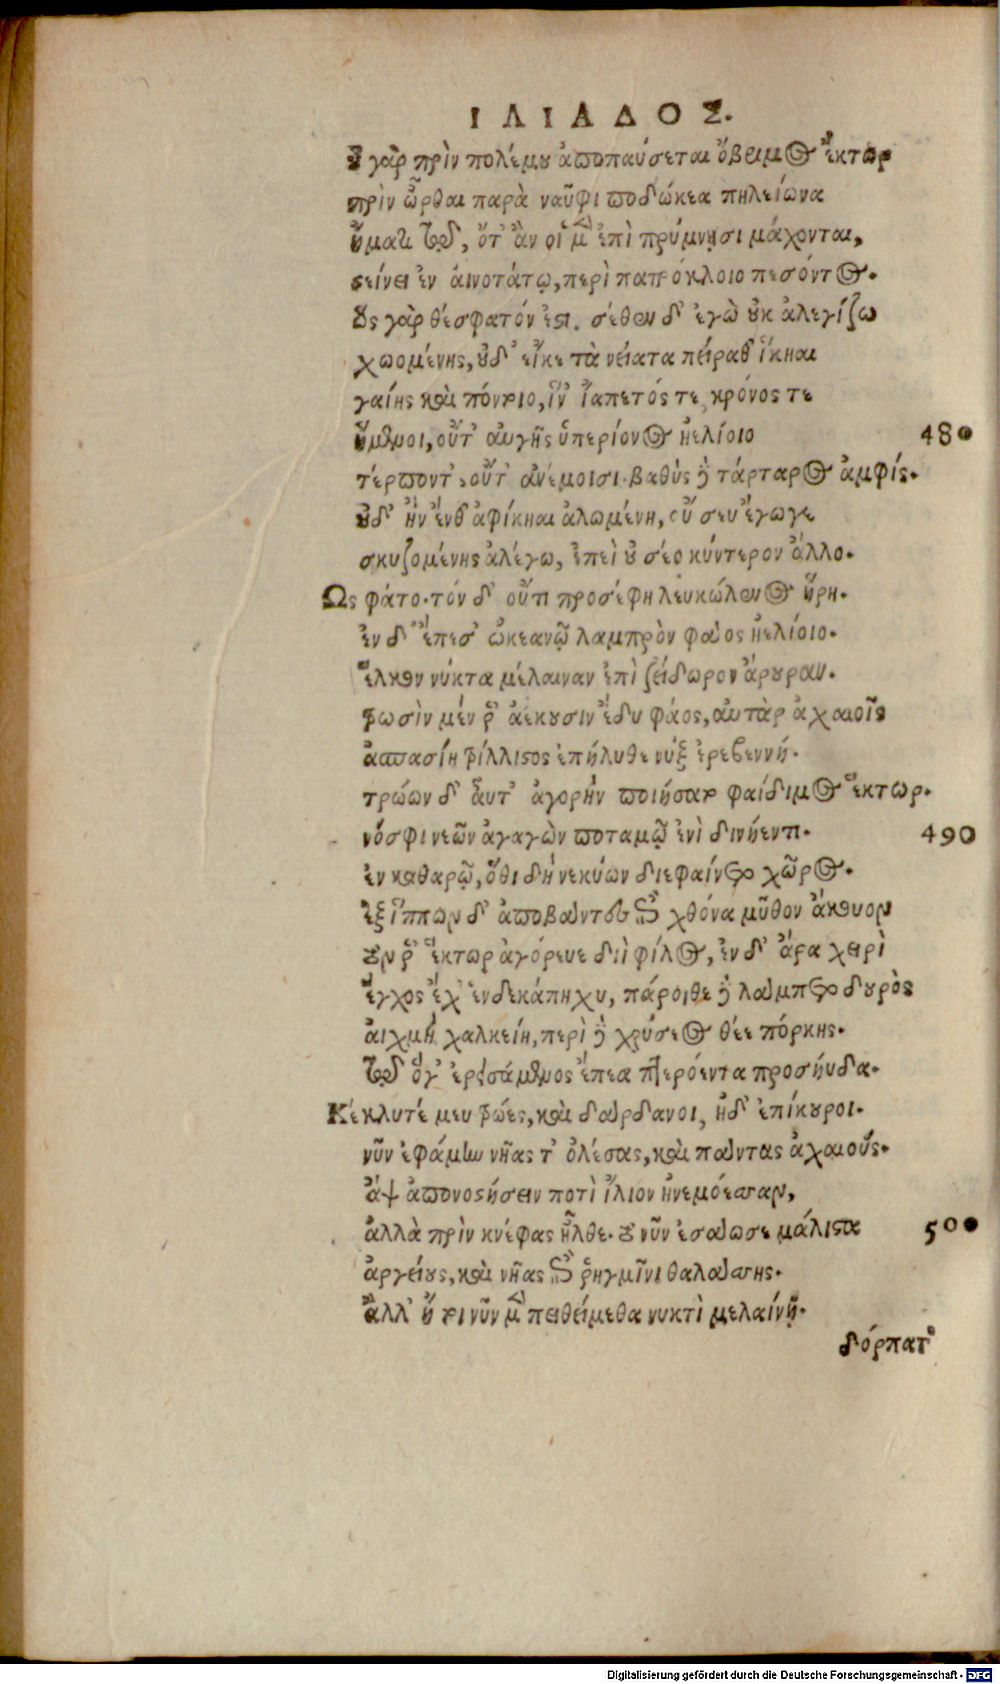 ΙΛΙΑΔΟΣ.
οὐ γὰρ πρὶν πολέμου ἀποπαύσεται ὄβριμος ἕκτωρ
πρὶν ὦρθαι παρὰ ναῦφι ποδώκεα πηλείωνα
ἤματι τῷδ', ὅτ' ἂν οἱ μὲν ἐπὶ πρύμνῃσι μάχονται,
στείνει ἐν αἰνοτάτῳ, περὶ πατρόκλοιο πεσόντος.
ὣς γὰρ θέσφατόν ἐστι. σέθεν δ' ἐγὼ οὐκ ἀλεγίζω
χωομένης, οὐδ' εἴκε τὰ νείατα πείραθ' ἵκηαι
γαίης καὶ πόντοιο, ἵν' ἰαπετός τε κρόνος τε
ἥμενοι, οὔτ' αὐγῆς ὑπερίονος ἠελίοιο 480
τέρποντ', οὔτ' ἀνέμοισι. βαθὺς δὲ τάρταρος ἀμφίς.
οὐδ' ἢν ἔνθ' ἀφίκηαι ἀλωμένη, οὔ σευ ἔγωγε
σκυζομένης ἀλέγω, ἐπεὶ οὐ σέο κύντερον ἄλλο.
Ως φάτο. τόν δ' οὔτι προσέφη λευκώλενος ἥρη.
ἐν δ' ἔπεσ' ὠκεανῷ λαμπρὸν φάος ἠελίοιο.
ἕλκον νύκτα μέλαιναν ἐπὶ ζείδωρον ἄρουραν.
τρωσὶν μέν ῥ' ἀέκουσιν ἔδυ φάος, αὐτὰρ ἀχαιοῖς
ἀσπασίη τρίλλιστος ἐπήλυθε νὺξ ἐρεβεννή.
τρώων δ' αὖτ' ἀγορὴν ποιήσατο φαίδιμος ἕκτωρ.
νόσφι νεῶν ἀγαγὼν ποταμῷ ἐνὶ δινήεντι. 490
ἐν καθαρῷ, ὅθι δὴ νεκύων διεφαίνετο χῶρος.
ἐξ ἵππων δ' ἀποβάντες ἐπὶ χθόνα μῦθον ἄκουον
τόν ῥ' ἕκτωρ ἀγόρευε διῒ φίλος, ἐν δ' ἄρα χειρὶ
ἔγχος ἔχ' ἑνδεκάπηχυ, πάροιθε δὲ λάμπετο δουρὸς
αἰχμὴ χαλκείη, περὶ δὲ χρύσεος θέε πόρκης.
τῷδ' ὅγ' ἐρεισάμενος ἔπεα πτερόεντα προσηύδα.
Κέκλυτέ μευ τρῶες, καὶ δάρδανοι, ἠδ' ἐπίκουροι.
νῦν ἐφάμην νῆας τ' ὀλέσας, καὶ πάντας ἀχαιοὺς.
ἂψ ἀπονοστήσειν ποτὶ ἴλιον ἠνεμόεσσαν,
ἀλλὰ πρὶν κνέφας ἦλθε. τὸ νῦν ἐσάωσε μάλιστα 500
ἀργείους, καὶ νῆας ἐπὶ ῥηγμῖνι θαλάσσης.
ἀλλ' ἤτοι νῦν μὲν πειθώμεθα νυκτὶ μελαίνῃ.
δόρπατ'
Digitalisierung gefördert durch die Deutsche Forschungsgemeinschaft - DFG